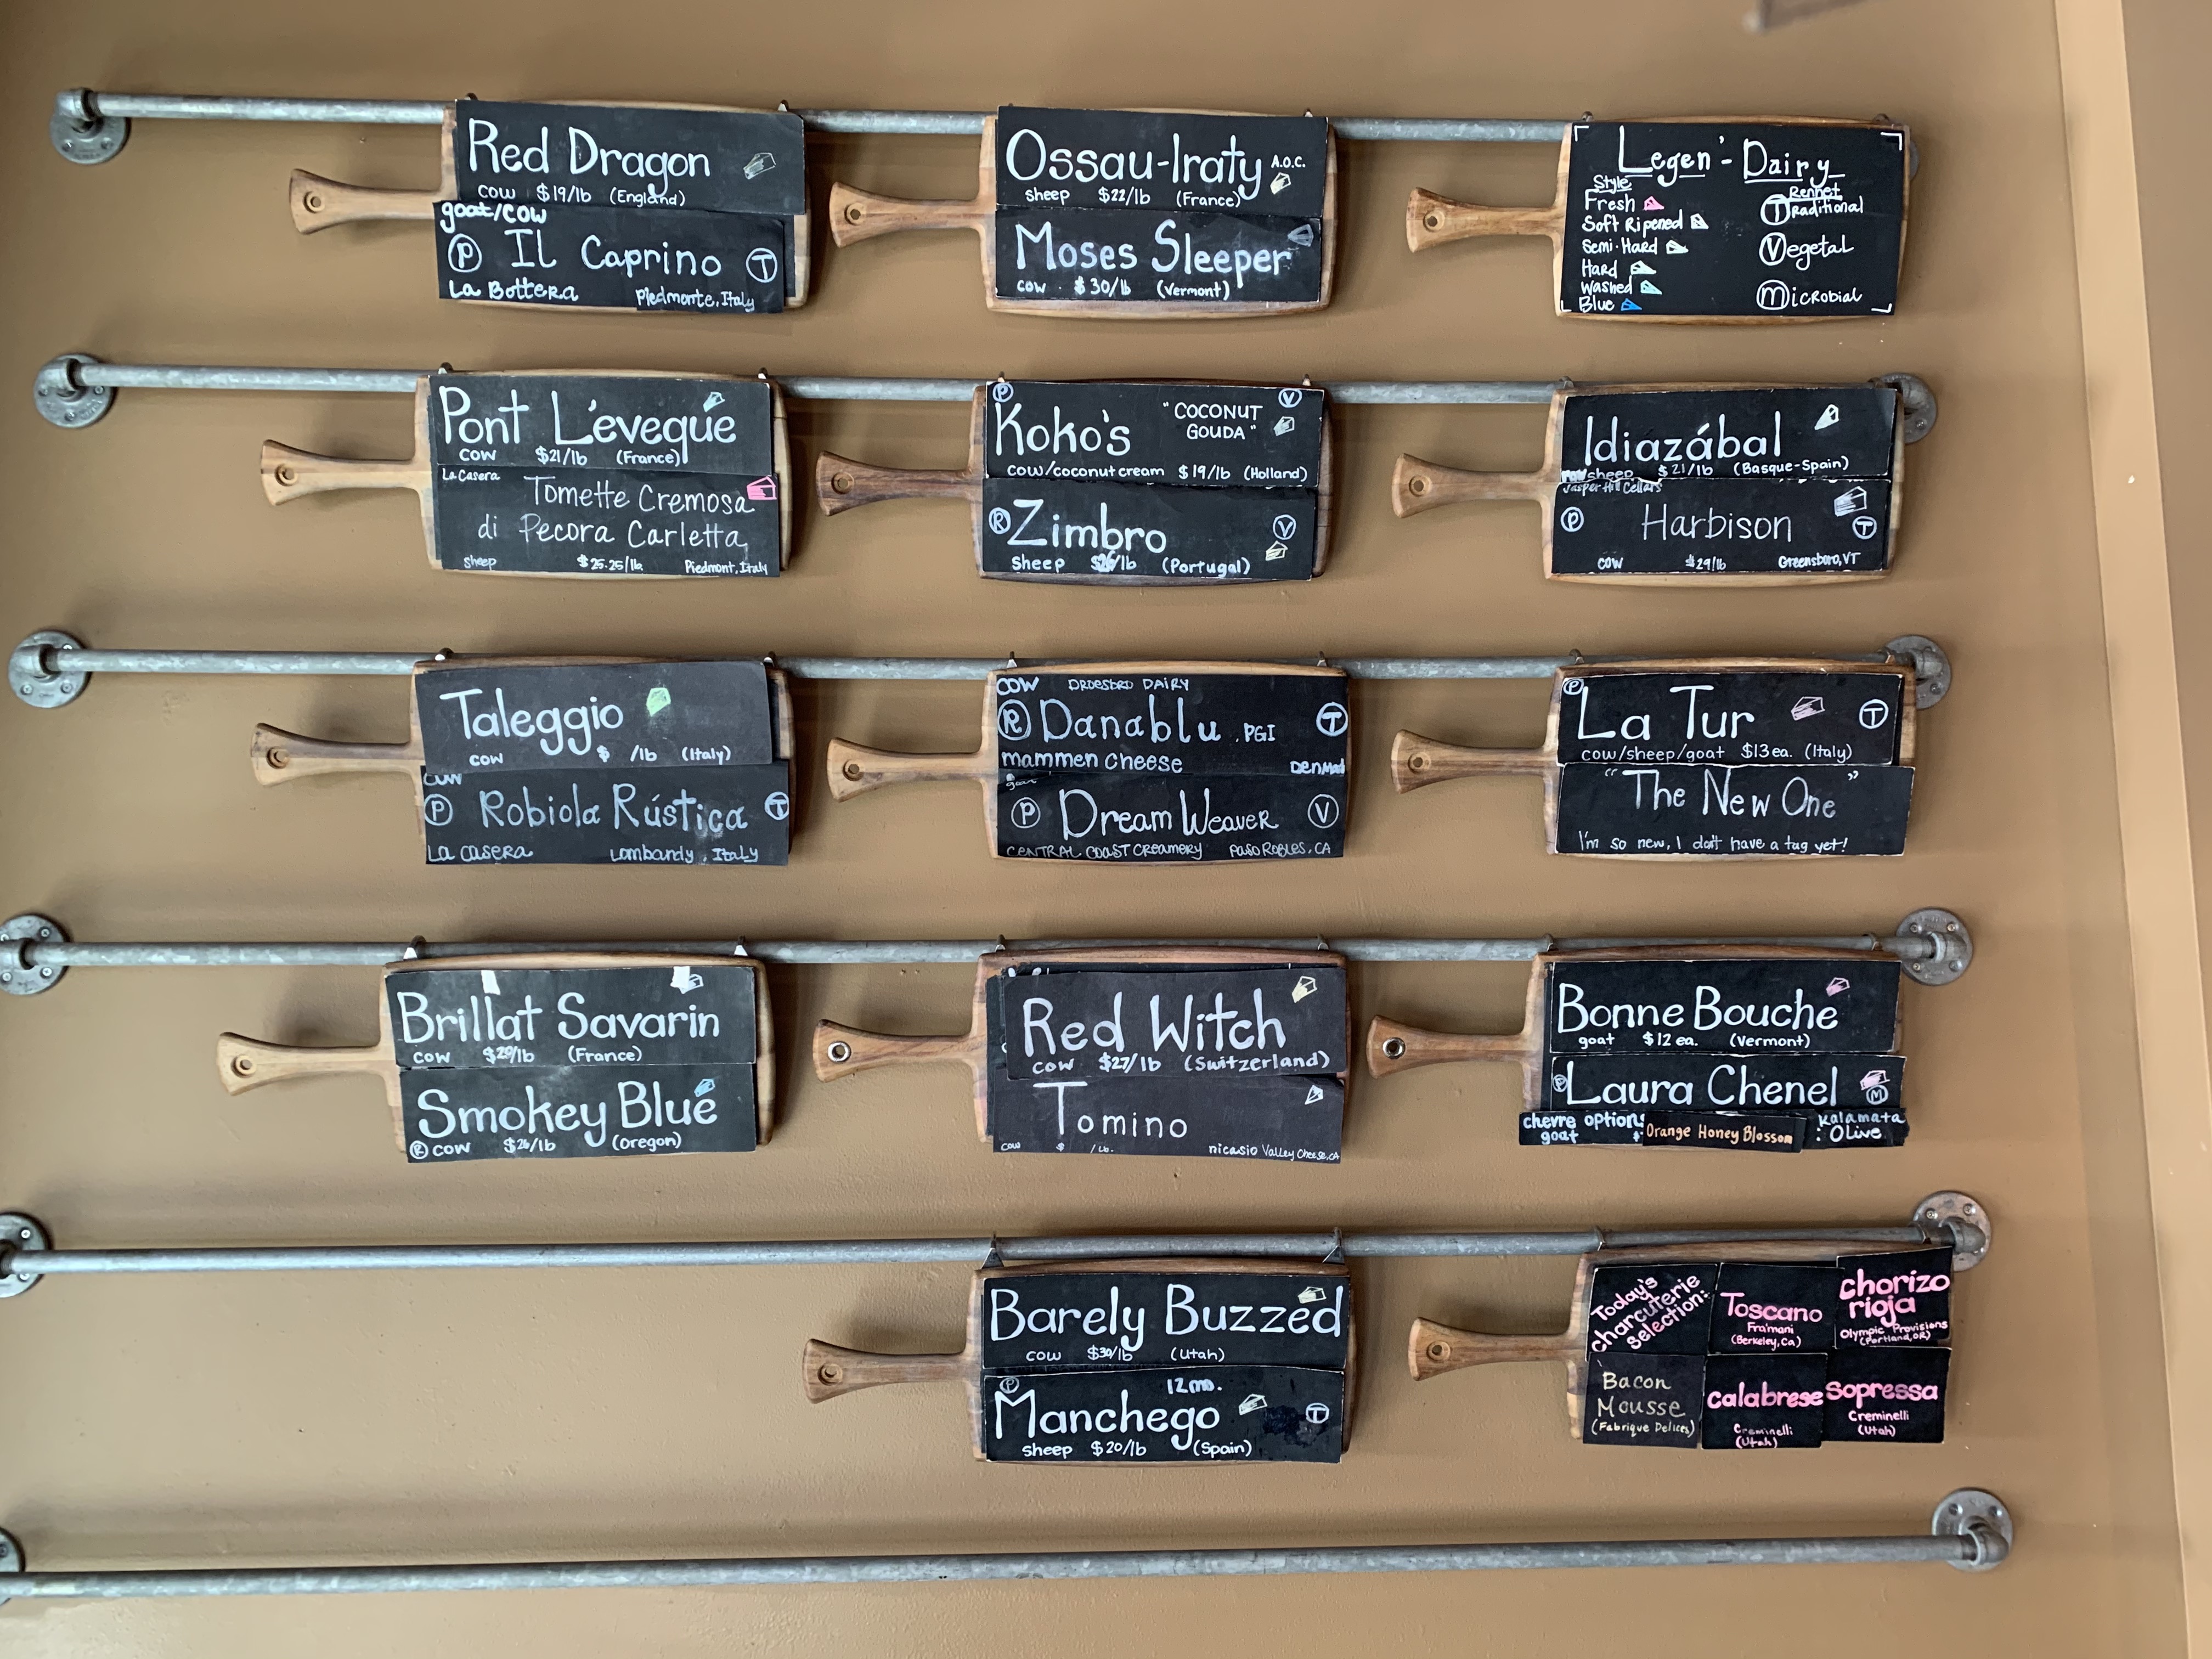 Red Dragon
cow $19/lb (England)
goat/cow
Ⓟ Il Caprino Ⓣ
La Bottera Piedmonte, Italy
Ossau-Iraty A.O.C.
sheep $22/lb (France)
Moses Sleeper
cow $30/lb (Vermont)
Legen'-Dairy
Style Rennet
Fresh Ⓣraditional
Soft Ripened
Semi-Hard Ⓥegetal
Hard
Washed Ⓜicrobial
Blue
Pont L'eveque
cow $21/lb (France)
La Casera
Tomette Cremosa
di Pecora Carletta
sheep $25.25/lb Piedmont, Italy
Ⓟ Ⓥ
Koko's "COCONUT
GOUDA"
cow/coconut cream $19/lb (Holland)
Ⓡ Zimbro Ⓥ
sheep /lb (Portugal)
Idiazábal
raw sheep $21/lb (Basque-Spain)
Jasper Hill Cellars
Ⓟ Harbison Ⓣ
cow $29/lb Greensboro, VT
Taleggio
cow $ /lb (Italy)
cow
Ⓟ Robiola Rústica Ⓣ
La Casera Lombardy, Italy
cow DROESBRO DAIRY
Ⓡ Danablu .PGI Ⓣ
mammen cheese Denmark
goat
Ⓟ Dream Weaver Ⓥ
CENTRAL COAST CREAMERY PASO ROBLES, CA
Ⓟ La Tur Ⓣ
cow/sheep/goat $13 ea. (Italy)
"The New One"
I'm so new, I don't have a tag yet!
Brillat Savarin
cow /lb (France)
Smokey Blue
Ⓡ cow $26/lb (Oregon)
Red Witch
cow $27/lb (Switzerland)
Tomino
cow $ /Lb. nicasio Valley Cheese, CA
Bonne Bouche
goat $12 ea. (Vermont)
Ⓟ Laura Chenel Ⓜ
chevre options
goat $
Orange Honey Blossom
Kalamata
: OLive
Barely Buzzed
cow $30/lb (Utah)
Ⓟ 12 mo.
Manchego Ⓣ
sheep $20/lb (Spain)
Today's
charcuterie
selection:
Toscano
Framani
(Berkeley, Ca)
chorizo
rioja
Olympic Provisions
(Portland, OR)
Bacon
Mousse
(Fabrique Delices)
calabrese
Creminelli
(Utah)
Sopressa
Creminelli
(Utah)